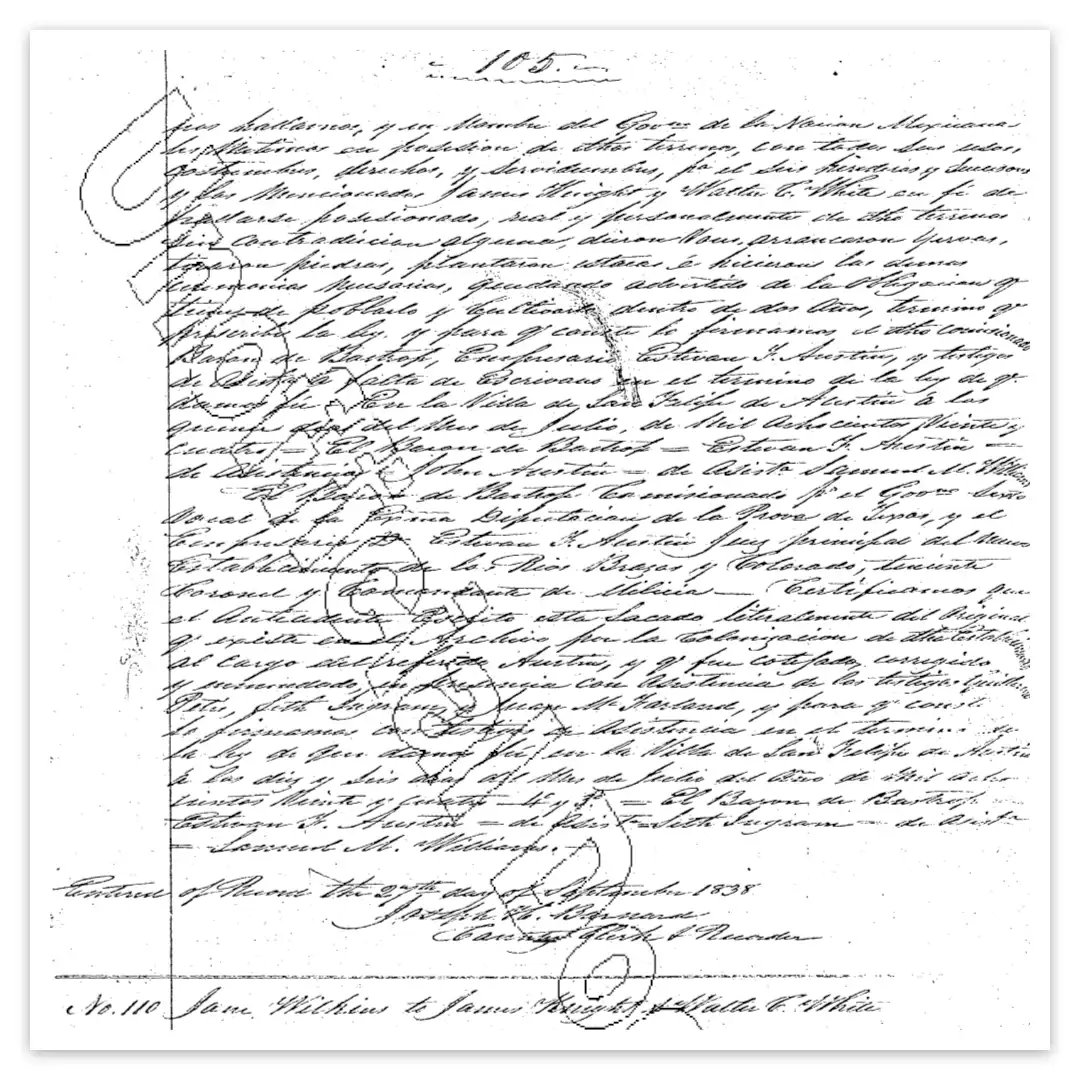 105.
pus hallamos, y en Nombre del Govno de la Nacion Mexicana
les Metimos en posesion de dtho terreno, con todos sus usos,
costumbres, derechos, y servidumbres, pa el sus herederos y Sucesores
y los Mencionados James Knight y Walter C. White en fé de
hallarse posesionado, real y personalmente de dtho terreno
sin contradicion alguna, dieron Voces, arrancaron Yervas,
tiraron piedras, plantaron estacas e hicieron las demas
ceremonias necesarias, quedando advertido de la obligacion q
tienen de poblarlo y Cultivar dentro de dos Años, termino q
prescribe la ley, y para q conste lo firmamos el dtho comicionado
Baron de Bastrop, Empresario Estevan F. Austin, y testigos
de Asista a falta de Escrivano en el termino de la ley de q
damos fé En la Villa de San Felipe de Austin a los
quince dias del Mes de Julio, de Mil Ochocientos Viente y
cuatro = El Baron de Bastrop = Estevan F. Austin =
de Asistencia John Austin = de Asista Samuel M. Williams
El Baron de Bastrop Comisionado pr el Govno
Vocal de la Exma Diputacion de la Prova de Texas, y el
Empresario D. Estevan F. Austin Juez principal del Nuevo
Establecimiento de los Rios Brazos y Colorado, Teniente
Coronel y Comandante de Milicia — Certificamos que
el Antecedente Escrito esta sacado literalmente del Original
q existe en el Archivo por la Colonizacion de dtho
al cargo del referido Austin, y q fue cotejado, corregido
y enmendado, en presencia con Asistencia de los testigos
Seth Ingram, y Juan McFarland, y para q conste
lo firmamos con testigos de Asistencia en el termino de
la ley de que damos fé, en la Villa de San Felipe de Austin
a los diez y seis dias del Mes de Julio del Año de Mil Ocho
cientos Viente y cuatro — 4o y 3o = El Baron de Bastrop
Estevan F. Austin = de Asista = Seth Ingram = de Asista
= Samuel M. Williams. =
Entered of Record the 27th day of September 1838
Joseph H. Barnard
County Clerk & Recorder
No. 110 Jane Wilkins to James Knight & Walter C. White
Unofficial Do